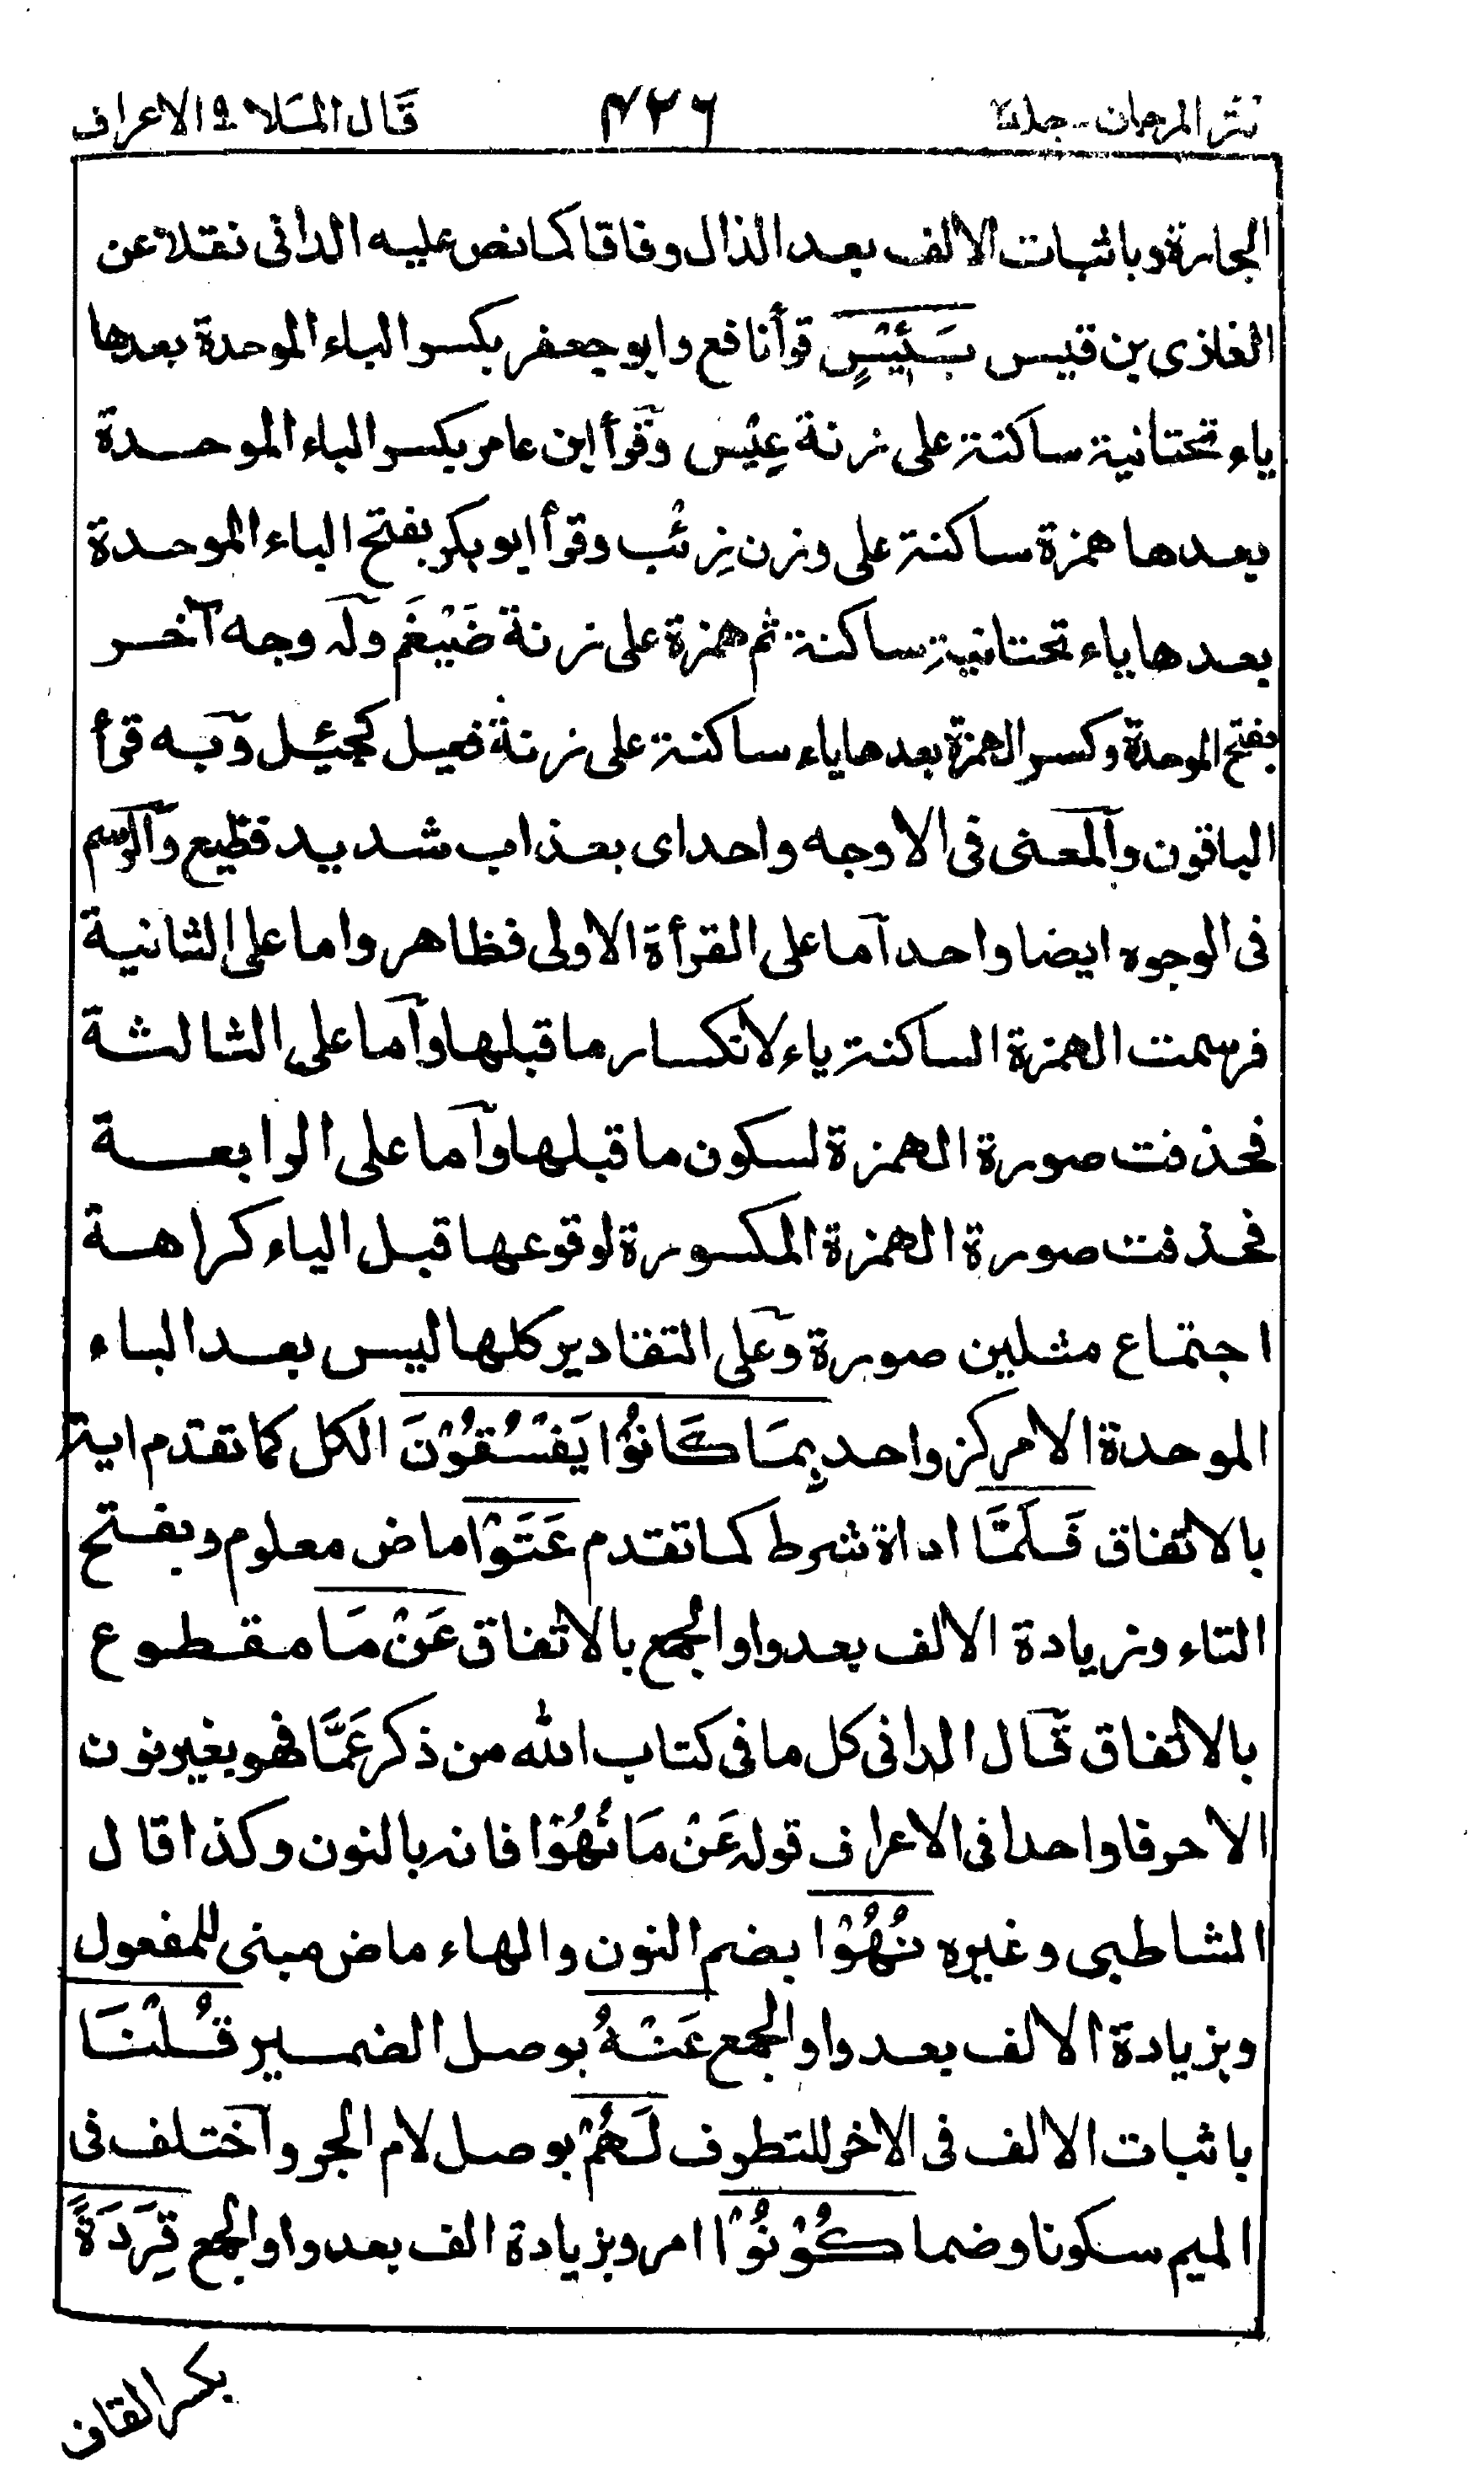 نثر المرجان - جلد
٤٢٦
قَال المَلا ٩ الاعراف
الجارة وباثبات الالف بعد الذال وفاقا كما نص عليه الدانى نقلا عن
الغازى بن قيس بَئِيْسٍ قرأ نافع وابو جعفر بكسر الباء الموحدة بعدها
ياء تحتانية ساكنة على زنة عِيْس وقرأ ابن عامر بكسر الباء الموحدة
بعدها همزة ساكنة على وزن زِئْب وقرأ ابو بكر بفتح الباء الموحدة
بعدها ياء تحتانية ساكنة ثم همزة على زنة ضَيْغَم وله وجه آخر
بفتح الموحدة وكسر الهمزة بعدها ياء ساكنة على زنة فعيل كجئيل وبه قرأ
الباقون والمعنى فى الاوجه واحد اى بعذاب شديد فظيع والرسم
فى الوجوه ايضا واحد اما على القرأة الاولى فظاهر واما على الثانية
فرسمت الهمزة الساكنة ياء لانكسار ما قبلها واما على الثالثة
فحذفت صورة الهمزة لسكون ما قبلها واما على الرابعة
فحذفت صورة الهمزة المكسورة لوقوعها قبل الياء كراهة
اجتماع مثلين صورة وعلى التقادير كلها ليس بعد الباء
الموحدة الا مركز واحد بِمَا كَانُوْا يَفْسُقُوْنَ الكل كما تقدم اية
بالاتفاق فَلَمَّا اداة شرط كما تقدم عَتَوْا ماض معلوم وبفتح
التاء وزيادة الالف بعد واو الجمع بالاتفاق عَنْ مَا مقطوع
بالاتفاق قال الدانى كل ما فى كتاب الله من ذكر عَمَّا فهو بغير نون
الا حرفا واحدا فى الاعراف قوله عَنْ مَا نُهُوْا فانه بالنون وكذا قال
الشاطبى وغيره نُهُوْا بضم النون والهاء ماض مبنى للمفعول
وبزيادة الالف بعد واو الجمع عَنْهُ بوصل الضمير قُلْنَا
باثبات الالف فى الاخر للتطرف لَهُمْ بوصل لام الجر واختلف فى
الميم سكونا وضما كُوْنُوْا امر وبزيادة الف بعد واو الجمع قِرَدَةً
بكسر القاف